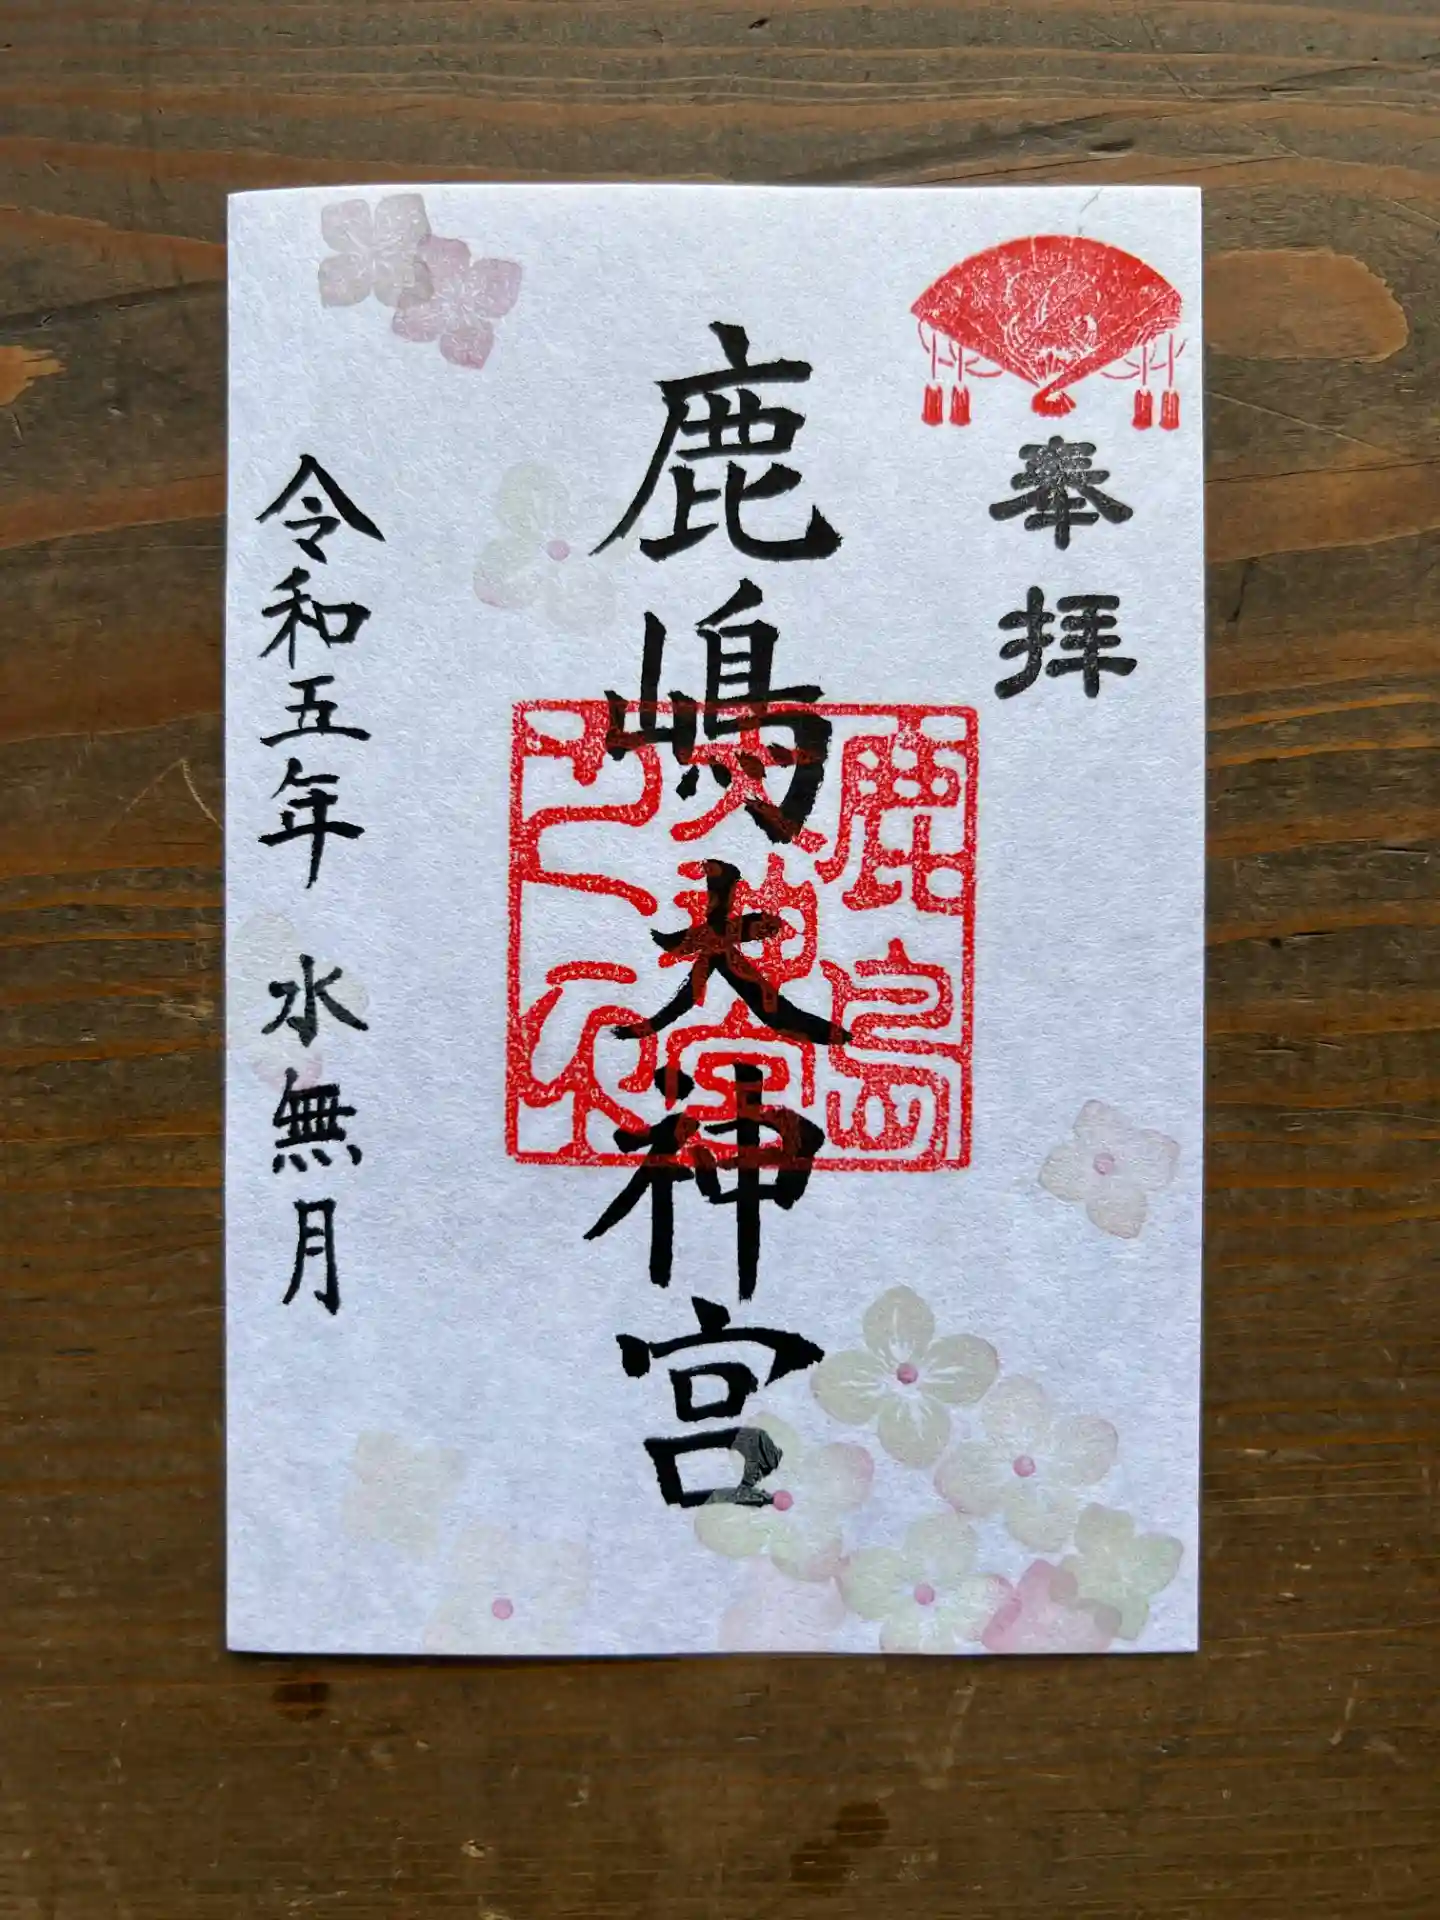 奉拝
鹿嶋大神宮
鹿島
大神宮
令和五年 水無月